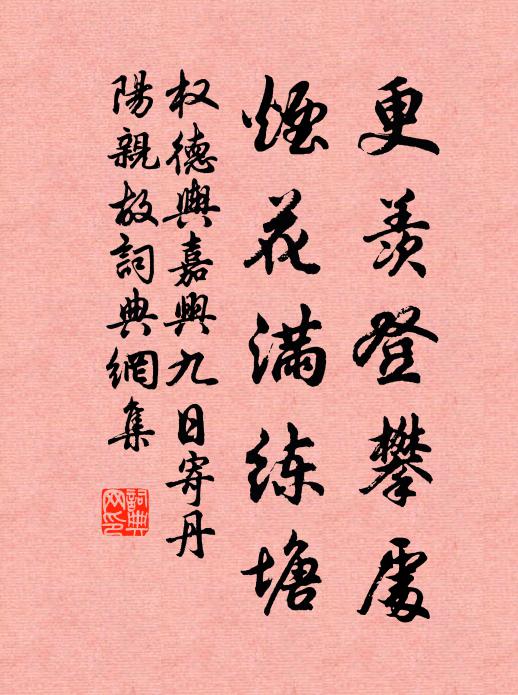 更羨登攀處
煙花滿练塘
权德輿嘉興九日寄丹
陽親故詞典網集
詞典
网印